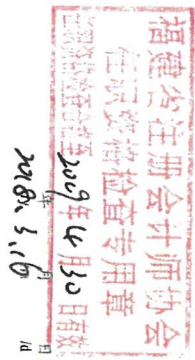 福建省注册会计师协会
任职资格检查专用章
2019年4月30日有效
2018.3.16
日
/d